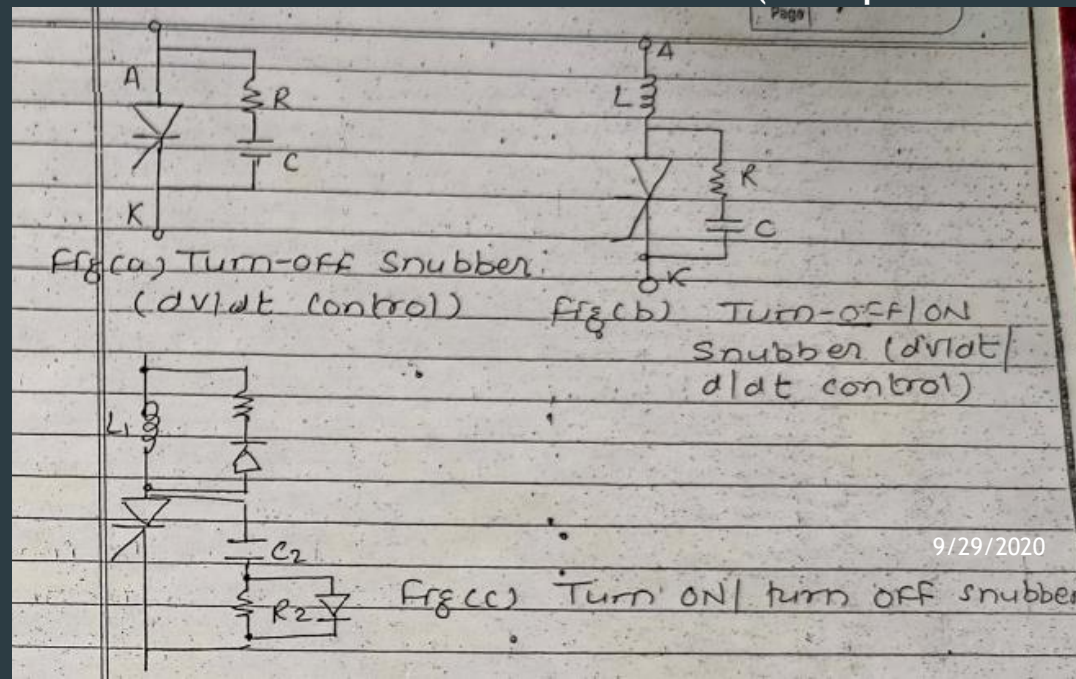 Page
A
R
C
K
Fig(a) Turn-off Snubber.
(dv/dt control)
A
L
R
C
K
Fig(b) Turn-OFF/ON
Snubber (dv/dt/
d/dt control)
L1
C2
R2
Fig(c) Turn ON/ turn OFF snubber
9/29/2020